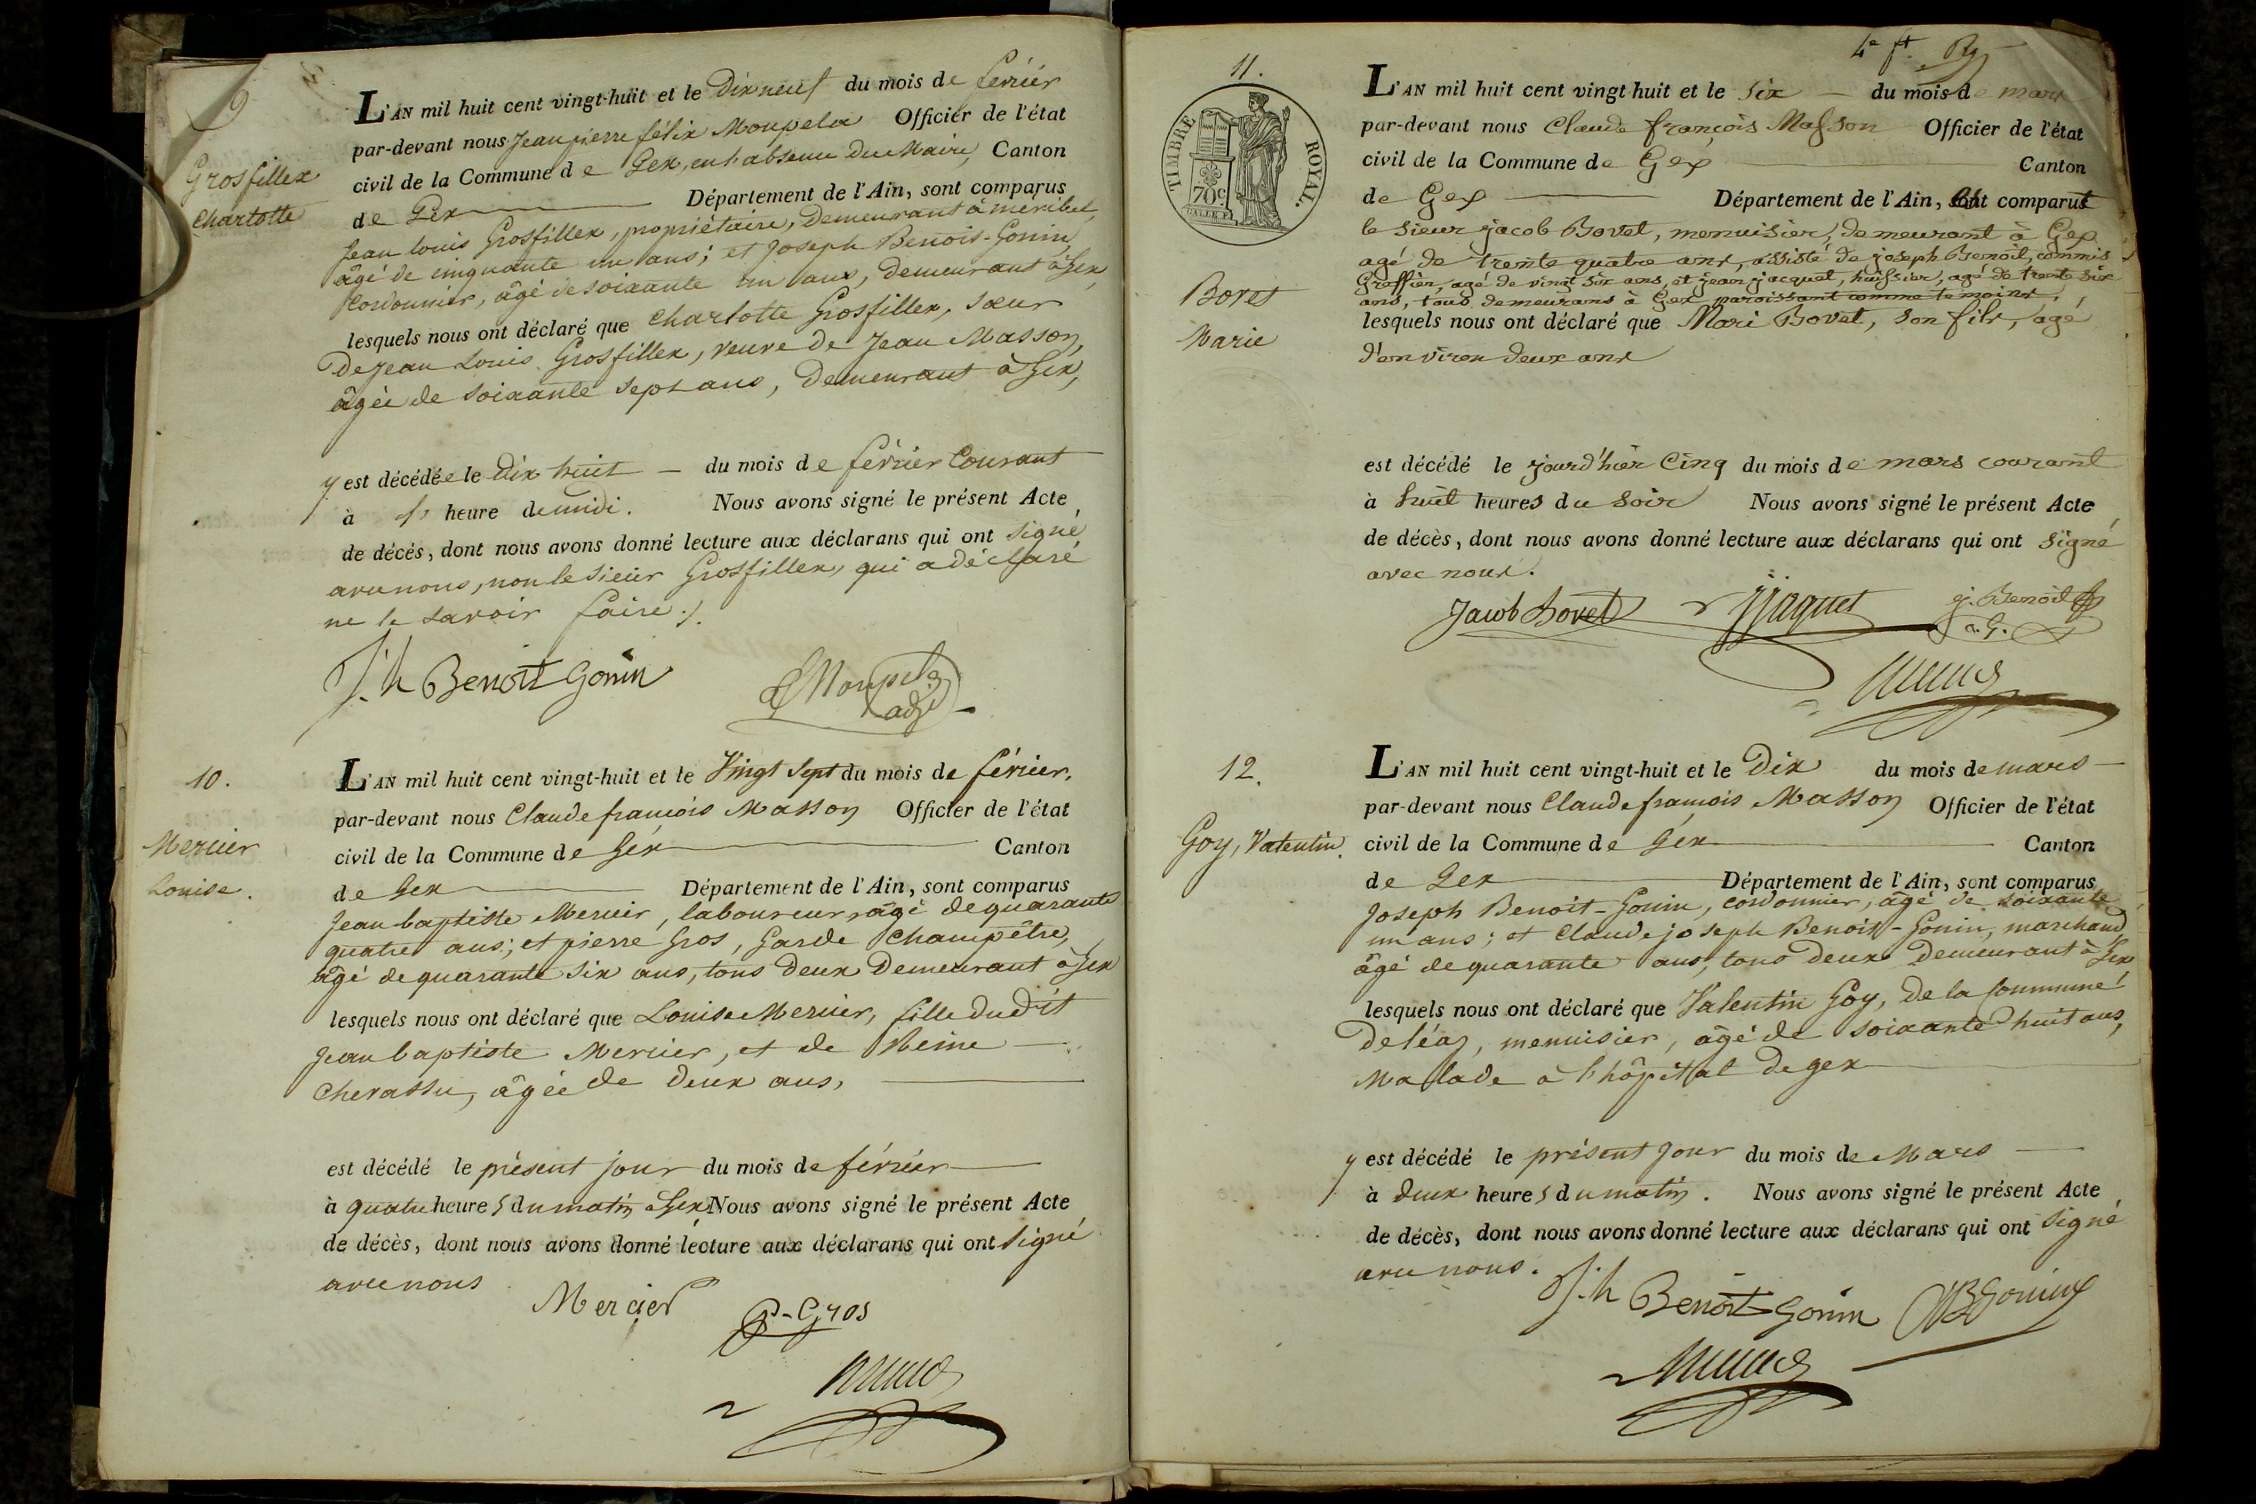 9
Grosfillex
Charlotte
L'AN mil huit cent vingt-huit et le Dix neuf du mois de février
par-devant nous Jean pierre félix Moupela Officier de l'état
civil de la Commune de Gex, en l'absence du Maire, Canton
de Gex Département de l'Ain, sont comparus
Jean Louis Grosfillex, propriétaire, demeurant à méribel,
âgé de cinquante un ans; et Joseph Benoit-Gonin,
Cordonnier, âgé de soixante un ans, demeurant à Gex,
lesquels nous ont déclaré que Charlotte Grosfillex, sœur
De Jean Louis Grosfillex, veuve de Jean Masson,
âgée de soixante sept ans, demeurant à Gex,
y est décédée le dix huit du mois de février Courant
à heure de midi. Nous avons signé le présent Acte
de décés, dont nous avons donné lecture aux déclarans qui ont signé
avec nous, non le sieur Grosfillex, qui a déclaré
ne le savoir faire ./.
J.h Benoit Gonin
Moupela
adj
10.
Mercier
Louise.
L'AN mil huit cent vingt-huit et le Vingt Sept du mois de février,
par-devant nous Claude françois Masson Officier de l'état
civil de la Commune de Gex Canton
de Gex Département de l'Ain, sont comparus
Jean baptiste Mercier, laboureur, âgé de quarante
quatre ans; et pierre Gros, Garde Champêtre,
âgé de quarante six ans, tous deux Demeurant à Gex
lesquels nous ont déclaré que Louise Mercier, fille du dit
Jean baptiste Mercier, et de Reine
Chevassu, âgée de deux ans,
est décédé le présent jour du mois de février
à quatre heures du matin à Gex Nous avons signé le présent Acte
de décès, dont nous avons donné lecture aux déclarans qui ont signé
avec nous
Mercier
P-Gros
11.
TIMBRE ROYAL.
70c
Bovet
Marie
L'AN mil huit cent vingt huit et le six du mois de mars
par-devant nous Claude françois Masson Officier de l'état
civil de la Commune de Gex Canton
de Gex Département de l'Ain, est comparut
le sieur jacob Bovet, menuisier, demeurant à Gex
agé de trente quatre ans, assisté de joseph Benoit, commis
Greffier, agé de vingt six ans, et jean jacquet, huissier, agé de trente six
ans, tous demeurans à Gex paroissant comme temoins,
lesquels nous ont déclaré que Mari Bovet, son fils, agé
d'environ deux ans
est décédé le jourd'hier Cinq du mois de mars courant
à huit heures du soir Nous avons signé le présent Acte
de décès, dont nous avons donné lecture aux déclarans qui ont signé
avec nous.
Jacob Bovet jjaquet j. Benoit
c. G.
12.
Goy, Valentin.
L'AN mil huit cent vingt-huit et le Dix du mois de mars
par-devant nous Claude françois Masson Officier de l'état
civil de la Commune de Gex Canton
de Gex Département de l'Ain, sont comparus
Joseph Benoit-Gonin, cordonnier, âgé de soixante
un ans; et Claude joseph Benoit-Gonin, marchand
âgé de quarante ans, tous deux Demeurant à Gex
lesquels nous ont déclaré que Valentin Goy, De la Commune
De léaz, menuisier, âgé de soixante huit ans,
Malade à l'hôpital de gex
y est décédé le présent jour du mois de Mars
à deux heures du matin. Nous avons signé le présent Acte
de décès, dont nous avons donné lecture aux déclarans qui ont signé
avec nous.
J.h Benoit Gonin